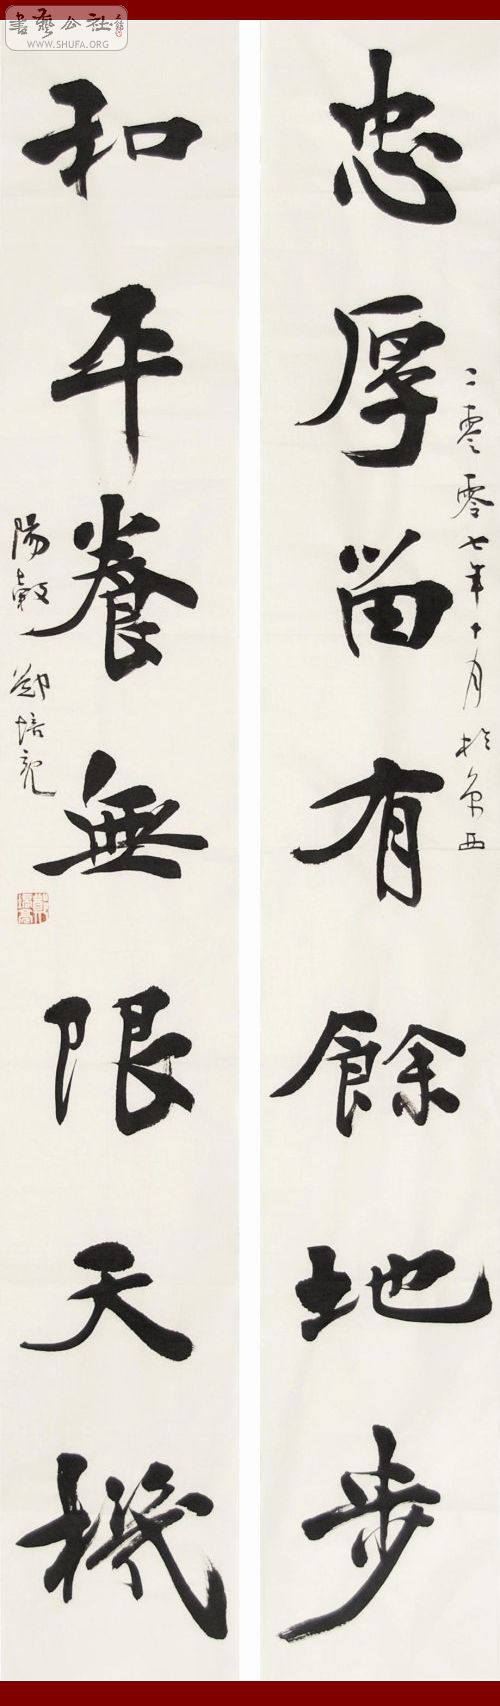 書藝公社
WWW.SHUFA.ORG
忠厚留有餘地步
二零零七年十月於京西
和平養無限天機
陽穀鄭培亮